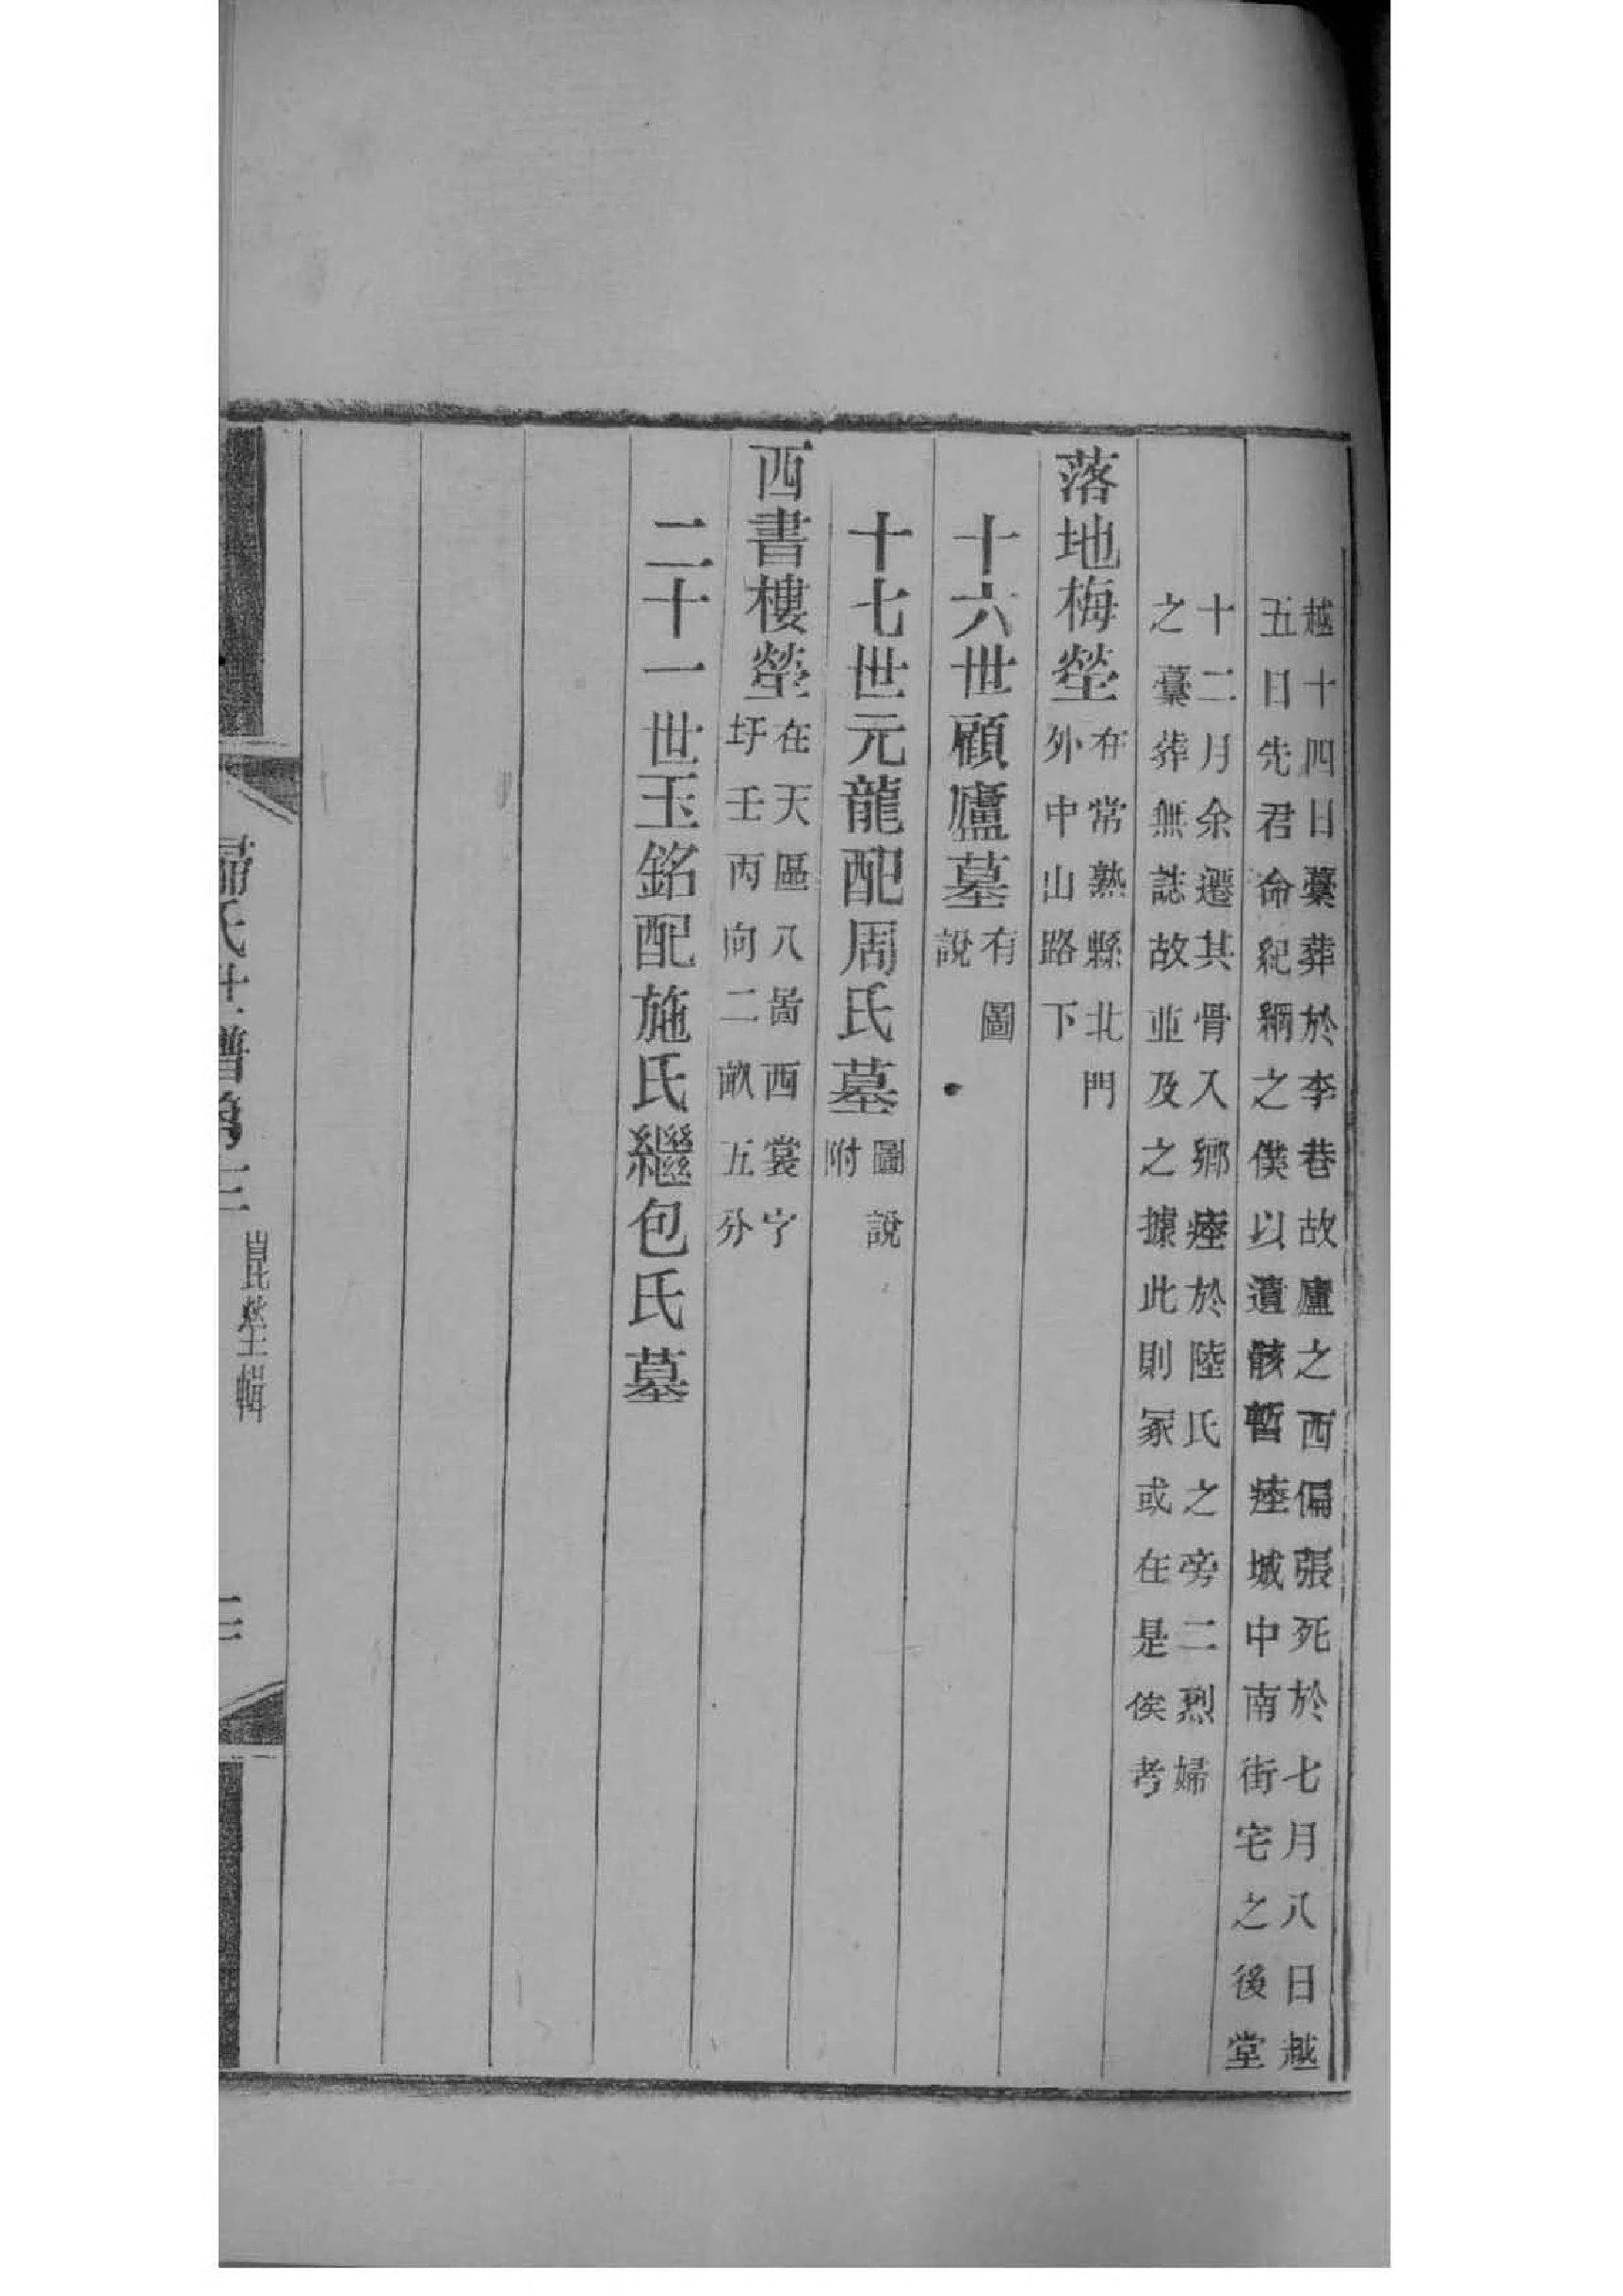 越十四日藁葬於李巷故廬之西偏張死於七月八日越
五日先君命紀綱之僕以遺骸暫瘞城中南街宅之後堂
十二月余遷其骨入鄉瘞於陸氏之旁二烈婦
之藁葬無誌故並及之據此則冢或在是俟考
落地梅塋
在常熟縣北門
外中山路下
十六世顧廬墓
有圖
說
十七世元龍配周氏墓
圖說
附
西書樓塋
在天區八啚西裳字
圩壬丙向二畝五分
二十一世玉銘配施氏繼包氏墓
歸氏世譜第三
崑塋輯
二